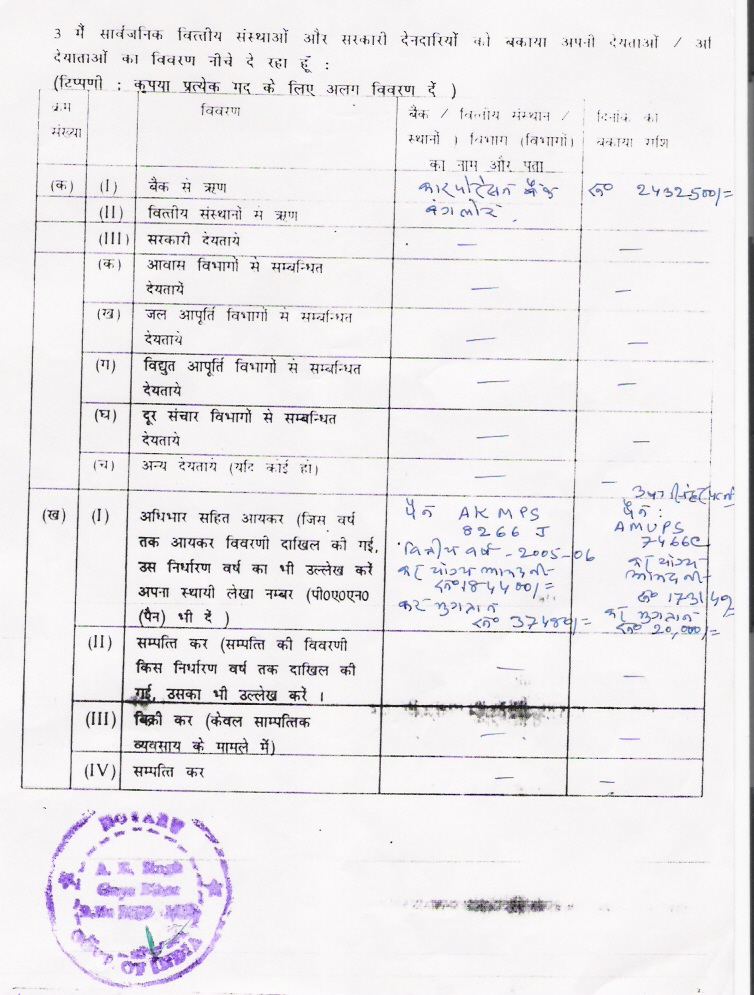 3 मैं सार्वजनिक वित्तीय संस्थाओं और सरकारी देनदारियों को बकाया अपनी देयताओं /
देयाताओं का विवरण नीचे दे रहा हूँ :
(टिप्पणी : कृपया प्रत्येक मद के लिए अलग विवरण दें )
क्रम संख्या
विवरण
बैंक / वित्तीय संस्थान /
स्थानों ) विभाग (विभागों)
का नाम और पता
दिनांक का
बकाया राशि
(क) (I) बैंक से ऋण
कारपोरेसन बैंक
बंगलोर
रू० 2432500/=
(II) वित्तीय संस्थानों से ऋण
(III) सरकारी देयताये — —
(क) आवास विभागों से सम्बन्धित
देयतायें — —
(ख) जल आपूर्ति विभागों से सम्बन्धित
देयताये — —
(ग) विद्युत आपूर्ति विभागों से सम्बन्धित
देयताये — —
(घ) दूर संचार विभागों से सम्बन्धित
देयताये — —
(च) अन्य देयताये (यदि कोई हो) — —
(ख) (I) अधिभार सहित आयकर (जिम वर्ष
तक आयकर विवरणी दाखिल की गई,
उस निर्धारण वर्ष का भी उल्लेख करें
अपना स्थायी लेखा नम्बर (पी०ए०एन०
(पैन) भी दें )
पैन AKMPS
8266 J
वित्तीय वर्ष - 2005-06
कर योग्य आमदनी
रू० 184400/=
कर भुगतान
रू० 37480/=
पैन :
AMUPS
7466C
कर योग्य
आमदनी
रू०
कर भुगतान
रू० 20,000/=
(II) सम्पत्ति कर (सम्पत्ति की विवरणी
किस निर्धारण वर्ष तक दाखिल की
गई, उसका भी उल्लेख करें । — —
(III) बिक्री कर (केवल साम्पत्तिक
व्यवसाय के मामले में) — —
(IV) सम्पत्ति कर — —
NOTARY
A. K. Singh
Gaya Bihar
GOVT. OF INDIA